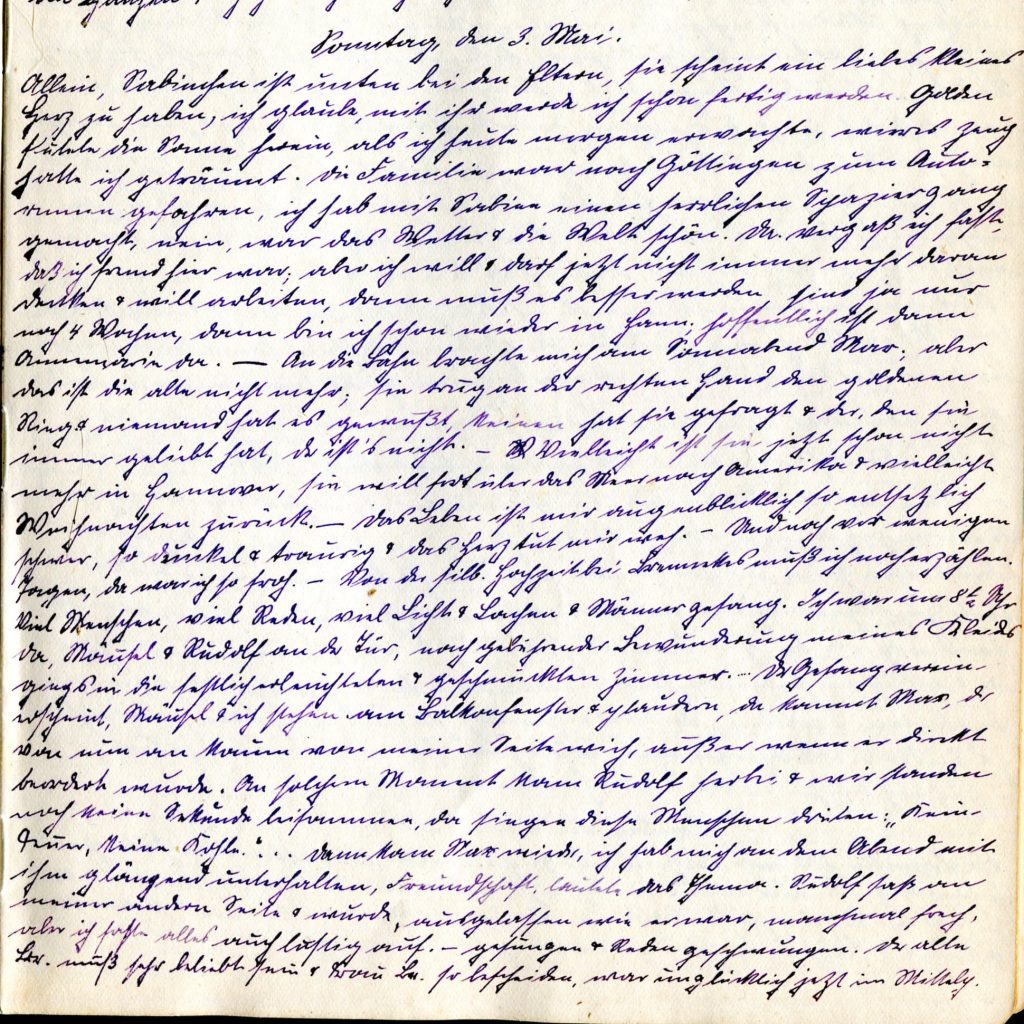 Sonntag, den 3. Mai.
Allein, Sabinchen ist unten bei den Eltern, sie scheint ein liebes kleines
Herz zu haben, ich glaube, mit ihr werde ich schon fertig werden. Golden
flutete die Sonne herein, als ich heute morgen erwachte, wirres Zeug
hatte ich geträumt. Die Familie war nach Göttingen zum Auto-
rennen gefahren, ich hab mit Sabine einen herrlichen Spaziergang
gemacht, nein, war das Wetter & die Welt schön. Da vergaß ich fast,
daß ich fremd hier war, aber ich will & darf jetzt nicht immer mehr daran
denken & will arbeiten, dann muß es besser werden, sind ja nur
noch 4 Wochen, dann bin ich schon wieder in Hann; hoffentlich ist dann
Annemarie da. — An die Bahn brachte mich am Sonnabend Mar; aber
das ist die alte nicht mehr; sie trug an der rechten Hand den goldenen
Ring & niemand hat es gewußt, keinen hat sie gefragt & der, den sie
immer geliebt hat, der ist's nicht. – Vielleicht ist sie jetzt schon nicht
mehr in Hannover, sie will fort über das Meer nach Amerika & vielleicht
Weihnachten zurück. — Das Leben ist mir augenblicklich so entsetzlich
schwer, so dunkel & traurig & das Herz tut mir weh. – Und noch vor wenigen
Tagen, da war ich so froh. – Von der silb. Hochzeit bei muß ich noch erzählen.
Viel Menschen, viel Reden, viel Licht & Lachen & Männergesang. Ich war um 8 Uhr
da, Mäusel & Rudolf an der Tür, nach gebührender Bewunderung meines Kleides
gings in die festlich erleuchteten & geschmückten Zimmer. – Der Gesangverein
erscheint, Mäusel & ich stehen am Balkonfenster & plaudern, da kommt Max, der
von nun an kaum von meiner Seite wich, außer wenn er direkt
beordert wurde. An solchem Moment kam Rudolf herbei & wir standen
noch keine Sekunde beisammen, da singen diese Menschen drüben: „Kein
Feuer, keine Kohle." ... Dann kam Max wieder, ich hab mich an dem Abend mit
ihm glänzend unterhalten, Freundschaft, lautete das Thema. Rudolf saß an
meiner andern Seite & wurde, ausgelassen wie er war, manchmal frech,
aber ich faßte alles auch lustig auf. – gesungen & Reden geschwungen. Der alte
Br. muß sehr beliebt sein & Frau Br. so bescheiden, war unglücklich jetzt im Mittelp.